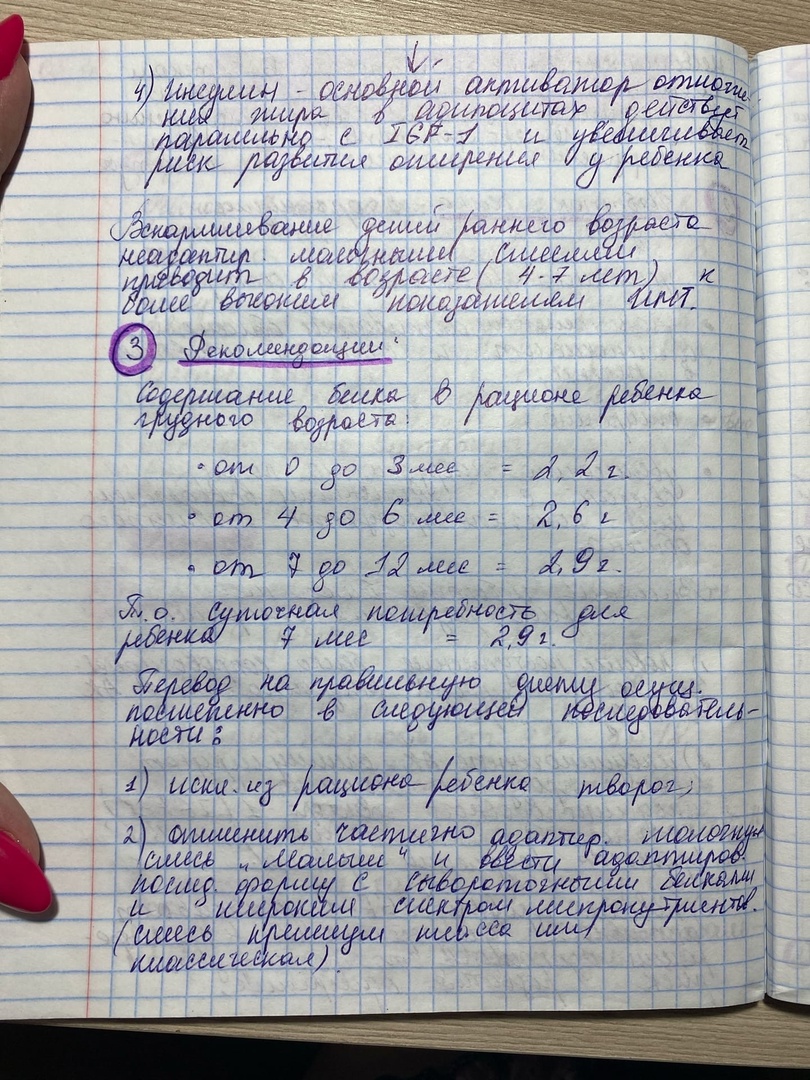 4) Инсулин - основной активатор отложе-
ния жира в адипоцитах действует
паралельно с IGF-1 и увеличивает
риск развития ожирения у ребенка
Вскармливание детей раннего возраста
неадаптир. молочными смесями
приводит в возрасте (4-7 лет) к
более высоким показателям ИМТ.
3 Рекомендации:
Содержание белка в рационе ребенка
грудного возраста:
• от 0 до 3 мес = 2,2 г.
• от 4 до 6 мес = 2,6 г
• от 7 до 12 мес = 2,9 г.
Т.о. суточная потребность для
ребенка 7 мес = 2,9 г.
Перевод на правильную диету осущ.
постепенно в следующей последователь-
ности:
1) искл. из рациона ребенка творог;
2) отменить частично адаптир. молочную
смесь "Малыш" и ввести адаптиров.
послед. формулу с сывороточными белками
и широким спектром микронутриентов.
(смесь премиум класса или
классическая).